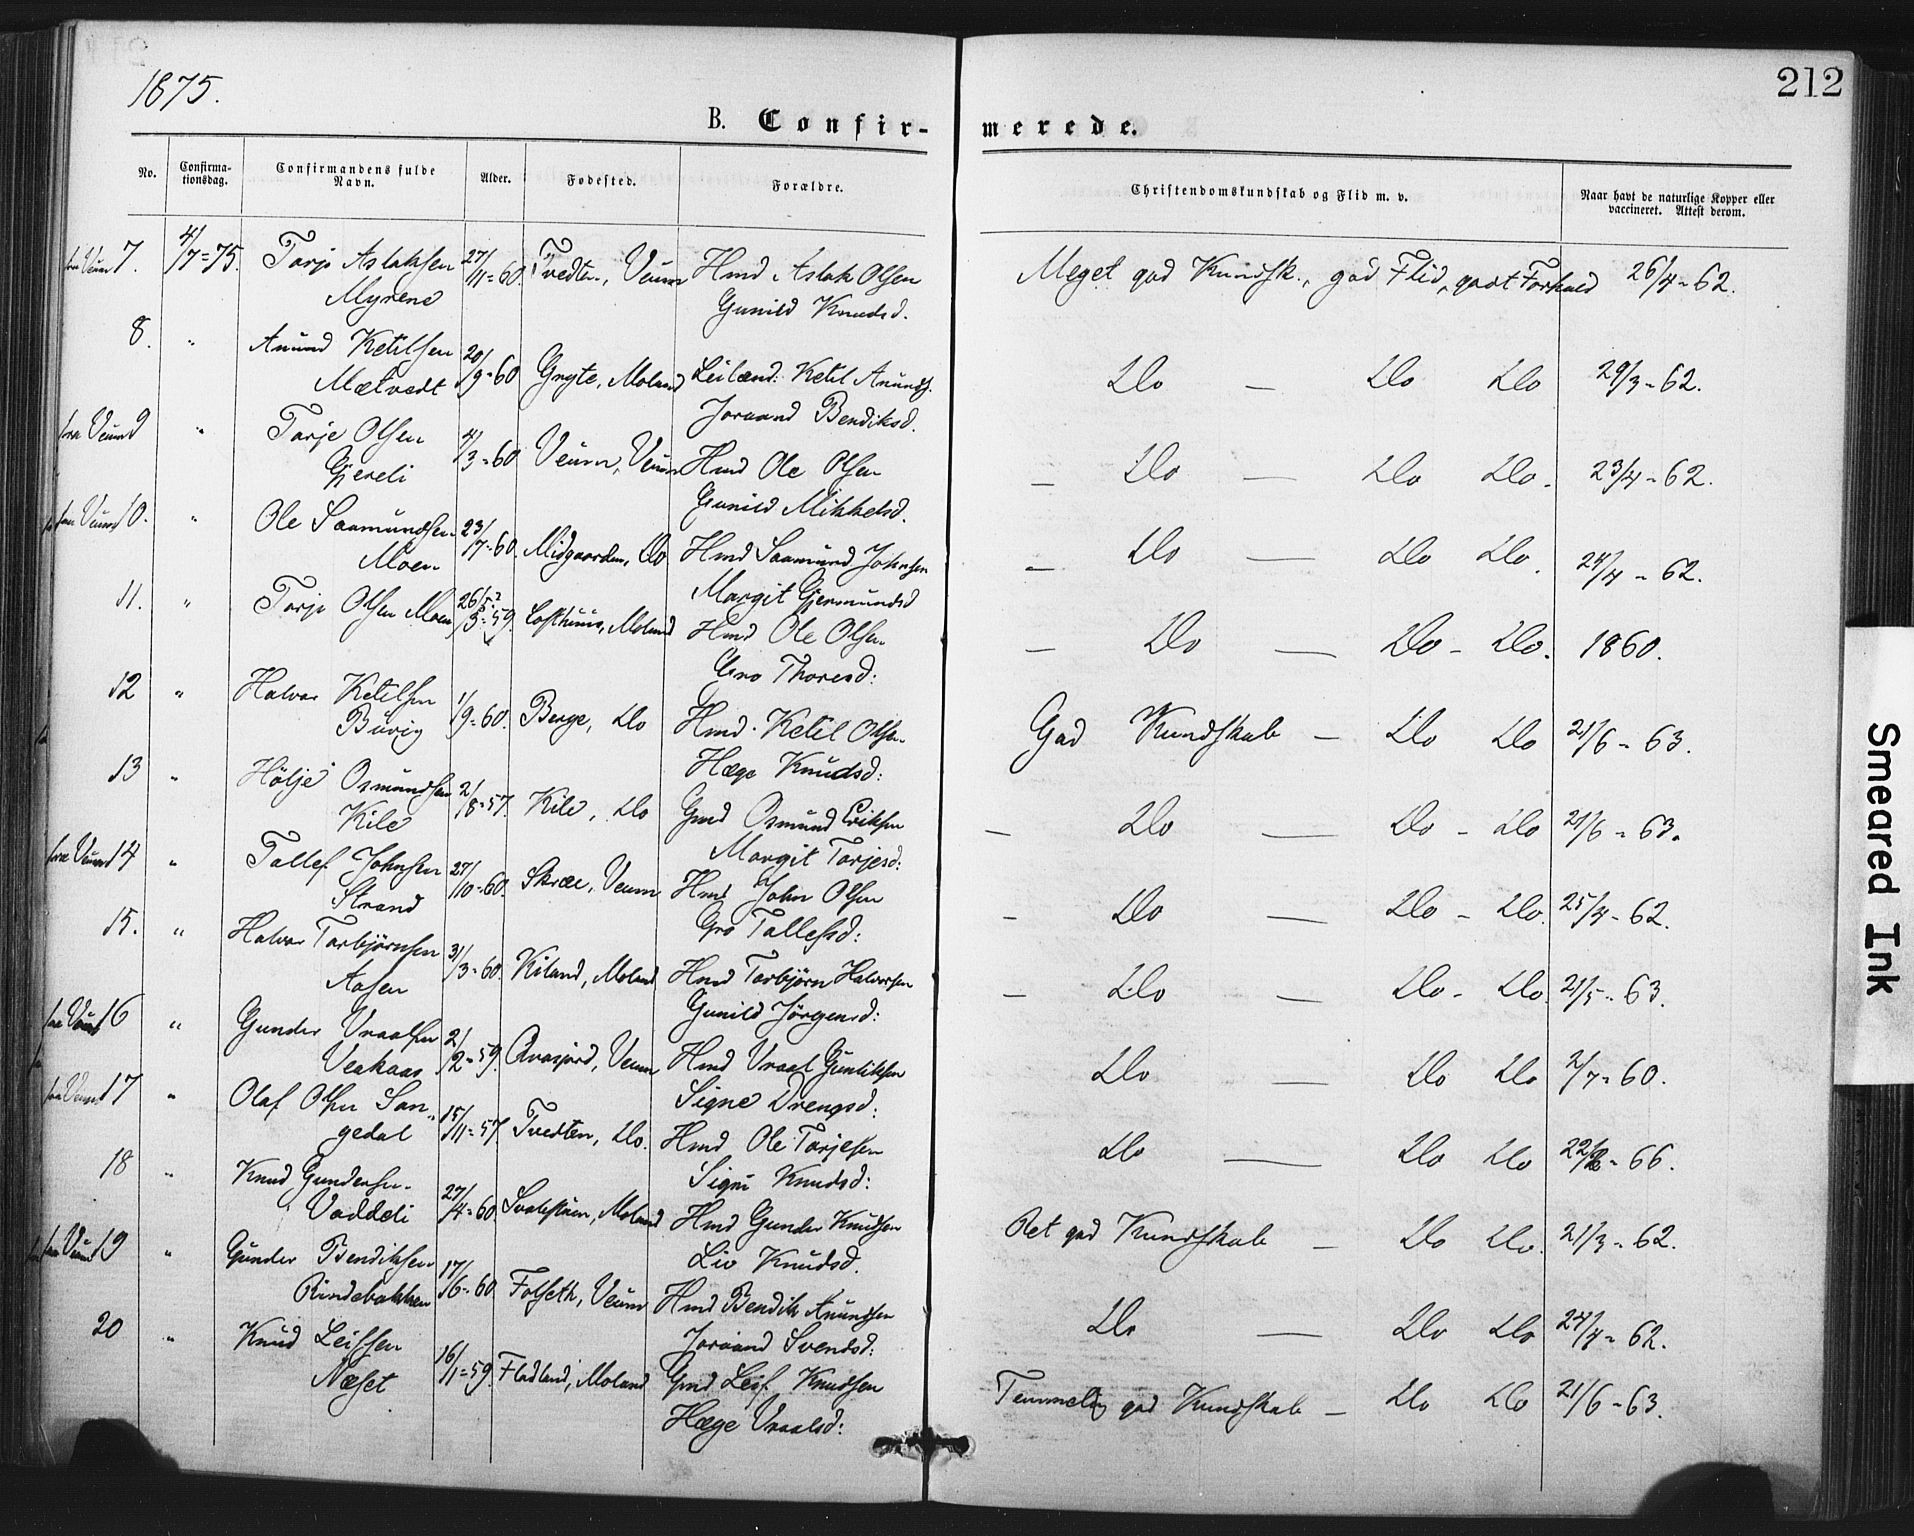 1875.
212
B. Confir-
merede.
No.
Confirma-
tionsdag.
Confirmandens fulde
Navn.
Alder.
Fødested.
Forældre.
Christendomskundskab og Flid m. v.
Naar havt de naturlige Kopper eller
vaccineret. Attest derom.
fra Veum 7. 4/7=75. Torje Aslaksen 27/11=60. Tvedten, Veum Hmd Aslak Olsen Meget god Kundsk., god Flid, godt Forhold 26/4-62.
Myrene Gunild Knudsd.
8. " Anund Ketilsen 20/9=60 Gryte, Moland Leilænd: Ketil Anunds. Do — Do Do 29/3-62.
Mætvedt Joraand Bendiksd.
fra Veum 9 " Torje Olsen 4/3=60 Veum, Veum Hmd Ole Olsen - Do — Do Do. 23/4-62.
Gjereli Gunild Mikkelsd.
fra Veum 10. " Ole Saamundsen 23/7=60. Midgaarden, Do Hmd Saamund Johnsen - Do — Do Do. 24/4-62.
Moen Margit Gjermundsd
11. " Torje Olsen Moen 26/3=59. Lofthuus, Moland Hmd Ole Olsen - Do — Do - Do. 1860.
Gro Thoresd:
12 " Halvor Ketilsen 1/9=60. Berge, Do Hmd. Ketil Olsen God Kundskab - Do Do 21/6-63.
Buvig Hæge Knudsd:
13 " Höljé Osmundsen 2/8=57. Kile, Do Gmd Osmund Eriksen - Do — Do - Do 21/6-63.
Kile Margit Torjesd:
fra Veum 14 " Tallef Johnsen 27/10=60. Skræe, Veum Hmd John Olsen - Do — Do - Do. 25/4-62.
Strand Gro Tallefsd:
15. " Halvor Torbjørnsen 31/3=60. Kiland, Moland Hmd Torbjørn Halvorsen - Do — Do - Do. 21/5-63.
Aasen Gunild Jörgensd:
fra Veum 16 " Gunder Vraalsen 2/2=59. Veum Hmd Vraal Gunliksen Do — Do Do 2/7=60.
Veakaas Signe Drengsd:
fra Veum 17 " Olaf Olsen San- 15/11=57. Tvedten, Do. Hmd Ole Torjesen Do — Do Do -66.
gedal Signe Knudsd:
18 " Knud Gundersen 27/4=60. Moland Hmd Gunder Knudsen Ret god Kundskab - Do Do. 21/3-62.
Vaddeli Liv Knudsd.
fra Veum 19 " Gunder Bendiksen 17/6=60 Folseth, Veum Hmd Bendik Anundsen Do — Do Do 24/4-62.
Rindebakken Joraand Svendsd:
20 " Knud Leifsen 16/1=59. Fladland, Moland Gmd Leif Knudsen Temmelig god Kundskab - Do Do 21/6-63.
Næset Hæge Vraalsd:
Smeared Ink